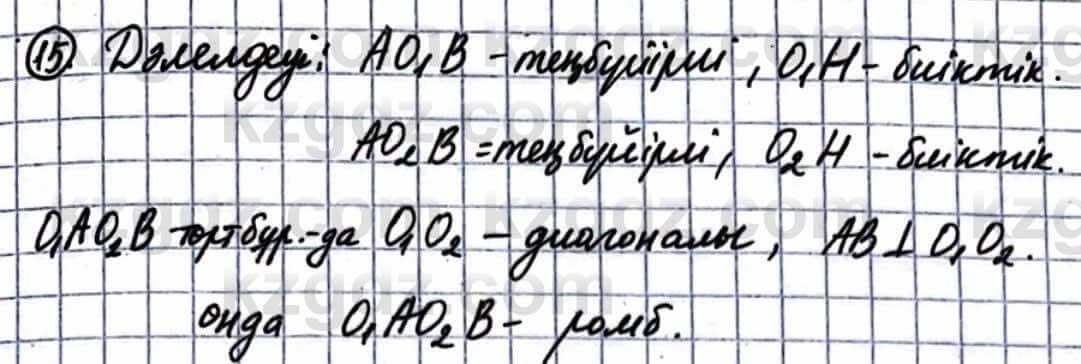 15) Дәлелдеуі: AO₁B - теңбүйірлі, O₁H - биіктік.
AO₂B = теңбүйірлі, O₂H - биіктік.
O₁AO₂B төртбұр.-да O₁O₂ - диагоналы, AB ⊥ O₁O₂.
онда O₁AO₂B - ромб.